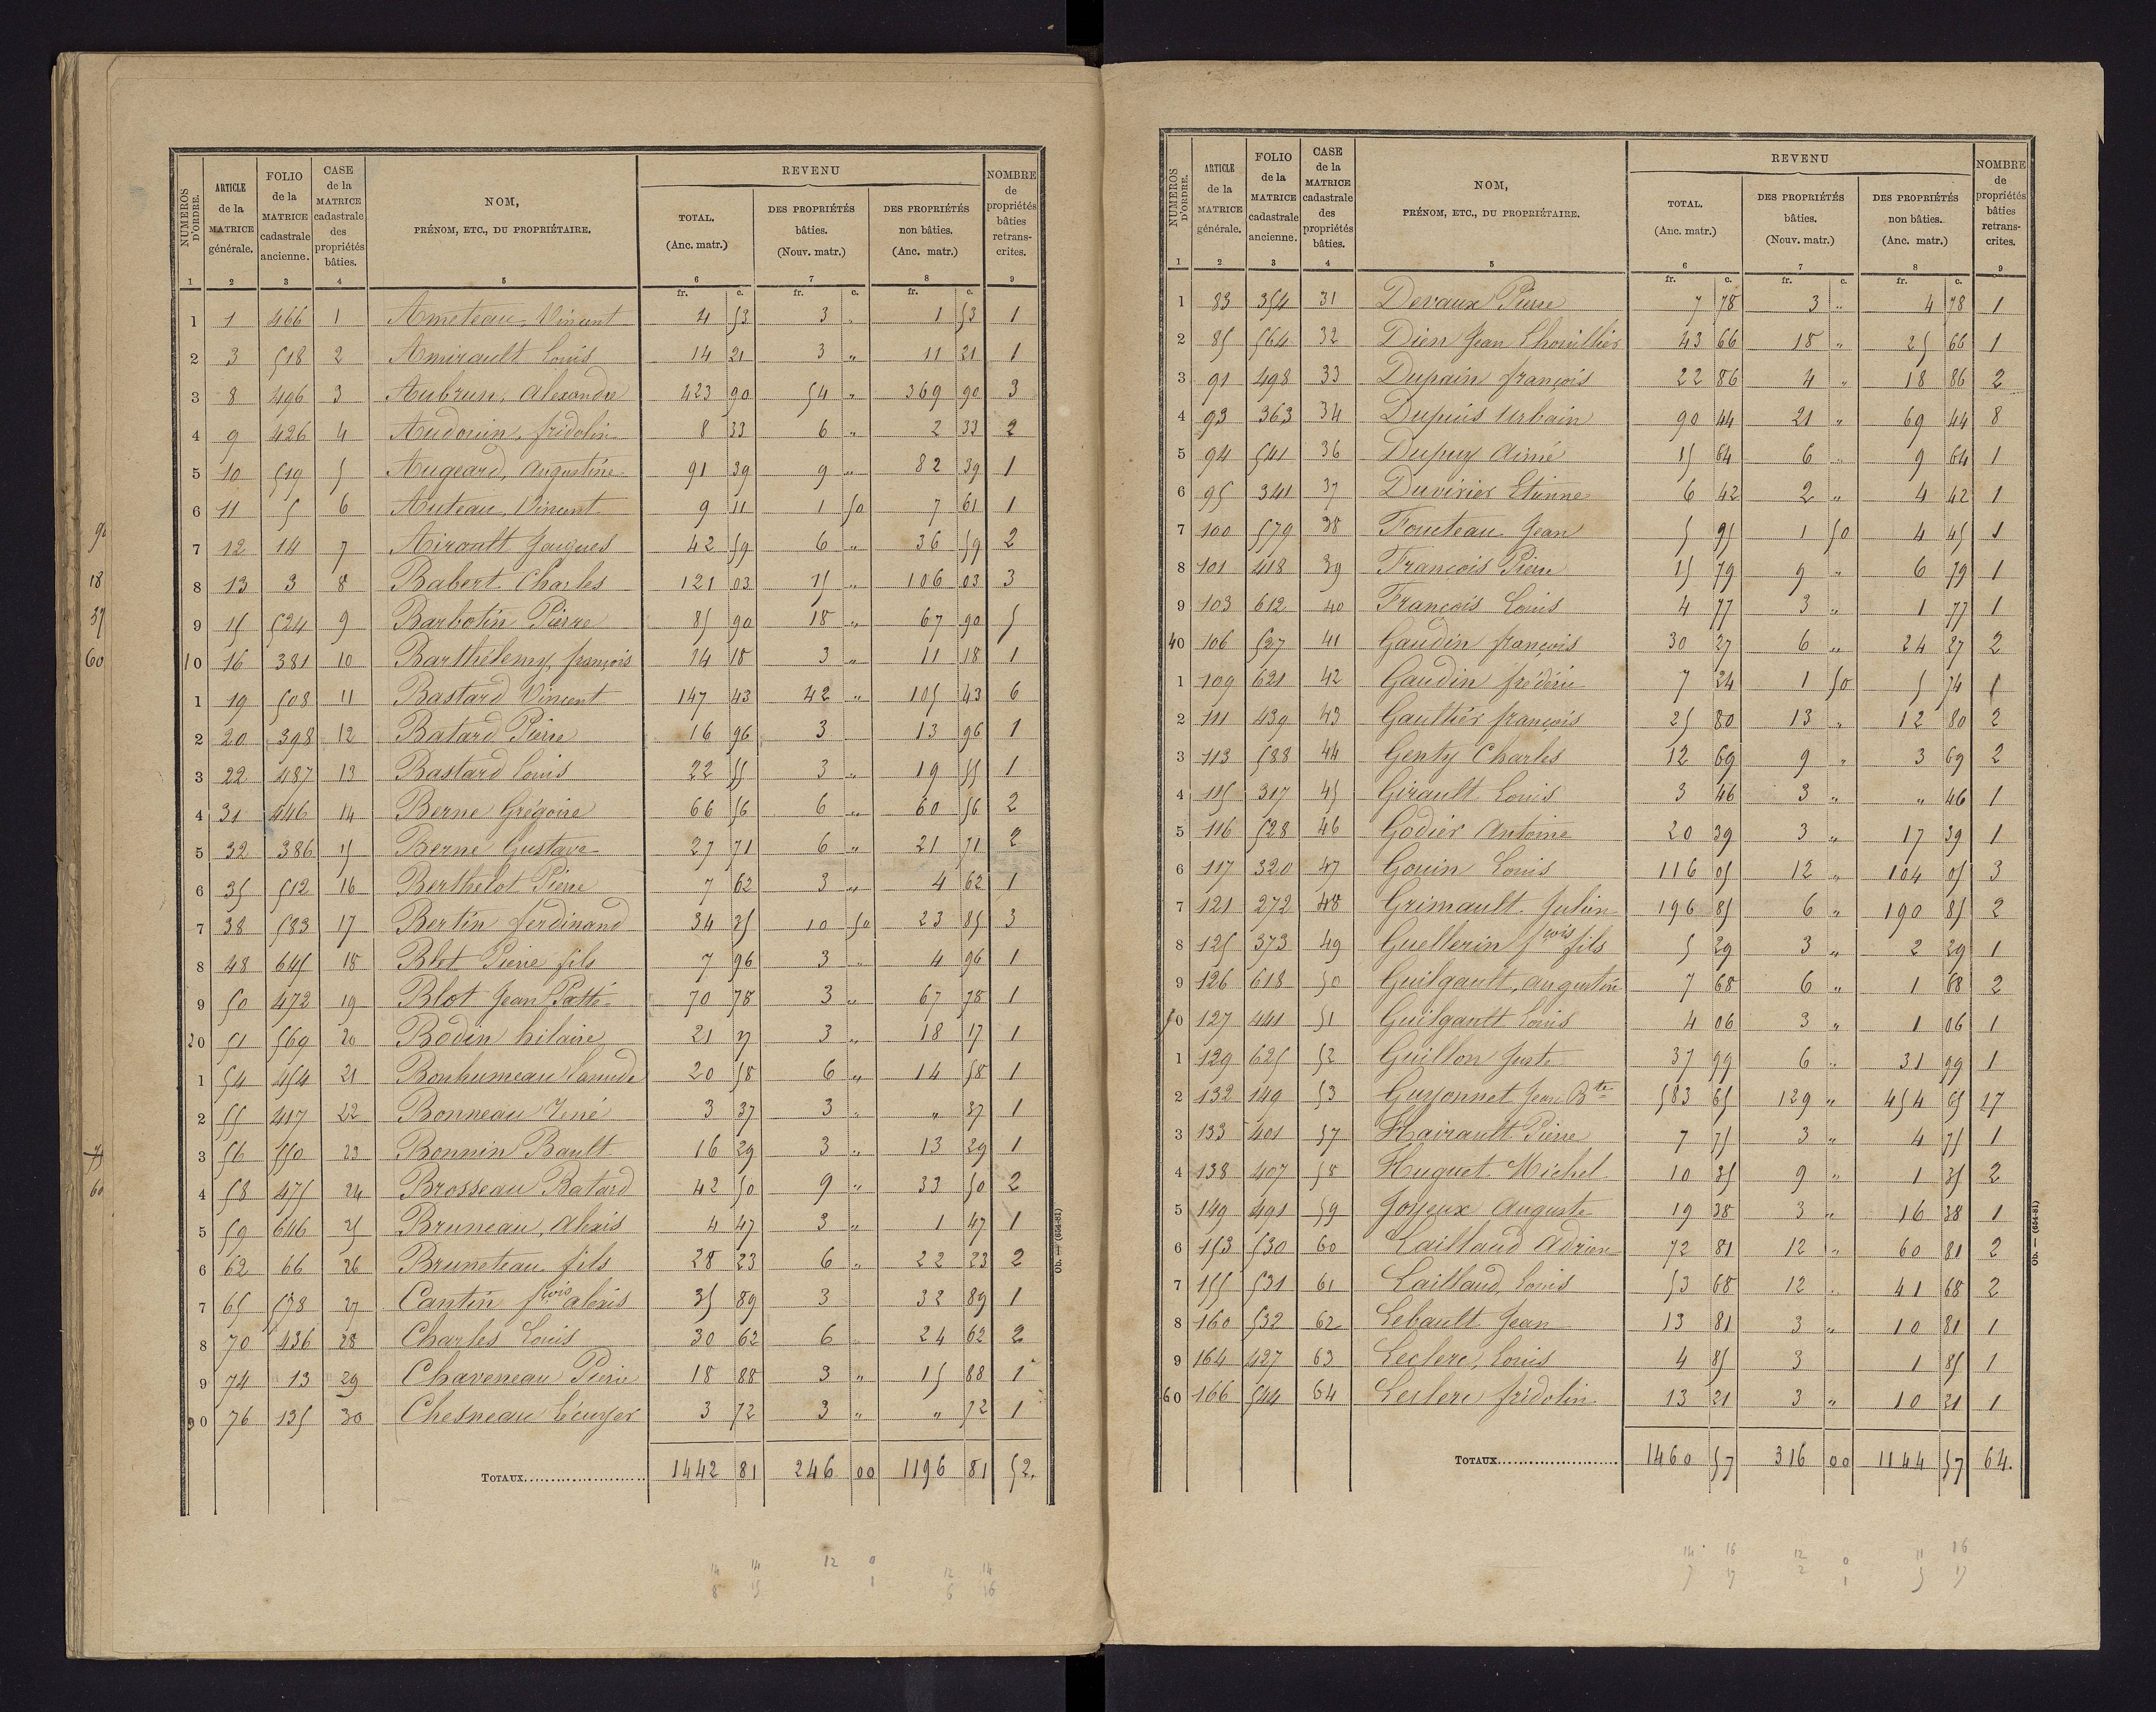 NUMÉROS D'ORDRE. ARTICLE de la MATRICE générale. FOLIO de la MATRICE cadastrale ancienne. CASE de la MATRICE cadastrale des propriétés bâties. NOM, PRÉNOM, ETC., DU PROPRIÉTAIRE. REVENU TOTAL. (Anc. matr.) DES PROPRIÉTÉS bâties. (Nouv. matr.) DES PROPRIÉTÉS non bâties. (Anc. matr.) NOMBRE de propriétés bâties retrans-crites.
1 2 3 4 5 6 7 8 9
fr. c. fr. c. fr. c.
1 1 466 1 Ameteau, Vincent 4 53 3 „ 1 53 1
2 3 518 2 Amirault Louis 14 21 3 „ 11 21 1
3 8 496 3 Aubrun, Alexandre 423 90 54 „ 369 90 3
4 9 426 4 Audouin, fridolin 8 33 6 „ 2 33 2
5 10 519 5 Augeard, Augustine 91 39 9 „ 82 39 1
6 11 5 6 Auteau, Vincent 9 11 1 50 7 61 1
7 12 14 7 Airault Jacques 42 59 6 „ 36 59 2
8 13 3 8 Babert Charles 121 03 15 „ 106 03 3
9 15 524 9 Barbotin Pierre 85 90 18 „ 67 90 5
10 16 381 10 Barthélemy, françois 14 18 3 „ 11 18 1
1 19 508 11 Bastard Vincent 147 43 42 „ 105 43 6
2 20 398 12 Batard Pierre 16 96 3 13 96 1
3 22 487 13 Bastard Louis 22 55 3 „ 19 55 1
4 31 446 14 Berne Grégoire 66 56 6 „ 60 56 2
5 32 386 15 Berne Gustave 27 71 6 „ 21 71 2
6 35 512 16 Berthelot Pierre 7 62 3 „ 4 62 1
7 38 583 17 Bertin ferdinand 34 35 10 50 23 85 3
8 48 645 18 Blot Pierre fils 7 96 3 „ 4 96 1
9 50 472 19 Blot Jean Patté 70 78 3 „ 67 78 1
20 51 569 20 Bodin hilaire 21 17 3 „ 18 17 1
1 54 454 21 Bonhumeau 20 58 6 „ 14 58 1
2 55 417 22 Bonneau René 3 37 3 „ „ 37 1
3 56 550 23 Bonnin Bault 16 29 3 „ 13 29 1
4 58 475 24 Brosseau Batard 42 50 9 „ 33 50 2
5 59 646 25 Bruneau, Alexis 4 47 3 „ 1 47 1
6 62 66 26 Bruneteau fils 28 23 6 „ 22 23 2
7 65 578 27 Cantin fçois alexis 35 89 3 32 89 1
8 70 436 28 Charles Louis 30 62 6 24 62 2
9 74 13 29 Chaveneau Pierre 18 88 3 „ 15 88 1
30 76 135 30 Chesneau Lécuyer 3 72 3 „ „ 72 1
TOTAUX 1442 81 246 00 1196 81 52.
14 14 12 0 12 14
8 15 1 6 16
90
18
37
60
60
Ob. — (654-81)
NUMÉROS D'ORDRE. ARTICLE de la MATRICE générale. FOLIO de la MATRICE cadastrale ancienne. CASE de la MATRICE cadastrale des propriétés bâties. NOM, PRÉNOM, ETC., DU PROPRIÉTAIRE. REVENU TOTAL. (Anc. matr.) DES PROPRIÉTÉS bâties. (Nouv. matr.) DES PROPRIÉTÉS non bâties. (Anc. matr.) NOMBRE de propriétés bâties retrans-crites.
1 2 3 4 5 6 7 8 9
fr. c. fr. c. fr. c.
1 83 354 31 Devaux Pierre 7 78 3 „ 4 78 1
2 85 564 32 Dien Jean Chouillier 43 66 18 „ 25 66 1
3 91 498 33 Dupain françois 22 86 4 „ 18 86 2
4 93 363 34 Dupuis Urbain 90 44 21 „ 69 44 8
5 94 541 36 Dupuy Aimé 15 64 6 „ 9 64 1
6 95 341 37 Duvivier Etienne 6 42 2 „ 4 42 1
7 100 579 38 Foucteau Jean 5 95 1 50 4 45 1
8 101 418 39 François Pierre 15 79 9 „ 6 79 1
9 103 612 40 François Louis 4 77 3 „ 1 77 1
40 106 527 41 Gaudin françois 30 27 6 „ 24 27 2
1 109 621 42 Gaudin frédéric 7 24 1 50 5 74 1
2 111 439 43 Gaultier françois 25 80 13 „ 12 80 2
3 113 588 44 Genty Charles 12 69 9 „ 3 69 2
4 115 317 45 Girault Louis 3 46 3 „ „ 46 1
5 116 528 46 Godier Antoine 20 39 3 „ 17 39 1
6 117 320 47 Gouin Louis 116 05 12 „ 104 05 3
7 121 272 48 Grimault Julien 196 85 6 „ 190 85 2
8 125 373 49 Guellerin fçois fils 5 29 3 „ 2 29 1
9 126 618 50 Guilgault, augustin 7 68 6 „ 1 68 2
50 127 441 51 Guilgault Louis 4 06 3 „ 1 06 1
1 129 625 52 Guillon Juste 37 99 6 „ 31 99 1
2 132 149 53 Guyonnet Jean Bte 583 65 129 „ 454 65 17
3 133 401 57 Hairault Pierre 7 75 3 „ 4 75 1
4 138 407 58 Huguet Michel 10 35 9 „ 1 35 2
5 149 491 59 Joyeux Auguste 19 38 3 „ 16 38 1
6 153 530 60 Laillaud Adrien 72 81 12 „ 60 81 2
7 155 531 61 Laillaud, Louis 53 68 12 „ 41 68 2
8 160 532 62 Lebault Jean 13 81 3 „ 10 81 1
9 164 427 63 Leclerc, Louis 4 85 3 1 85 1
60 166 544 64 Leclerc fridolin 13 21 3 „ 10 21 1
TOTAUX 1460 57 316 00 1144 57 64.
14 16 12 0 11 16
7 17 2 1 5 17
Ob. — (654-81)